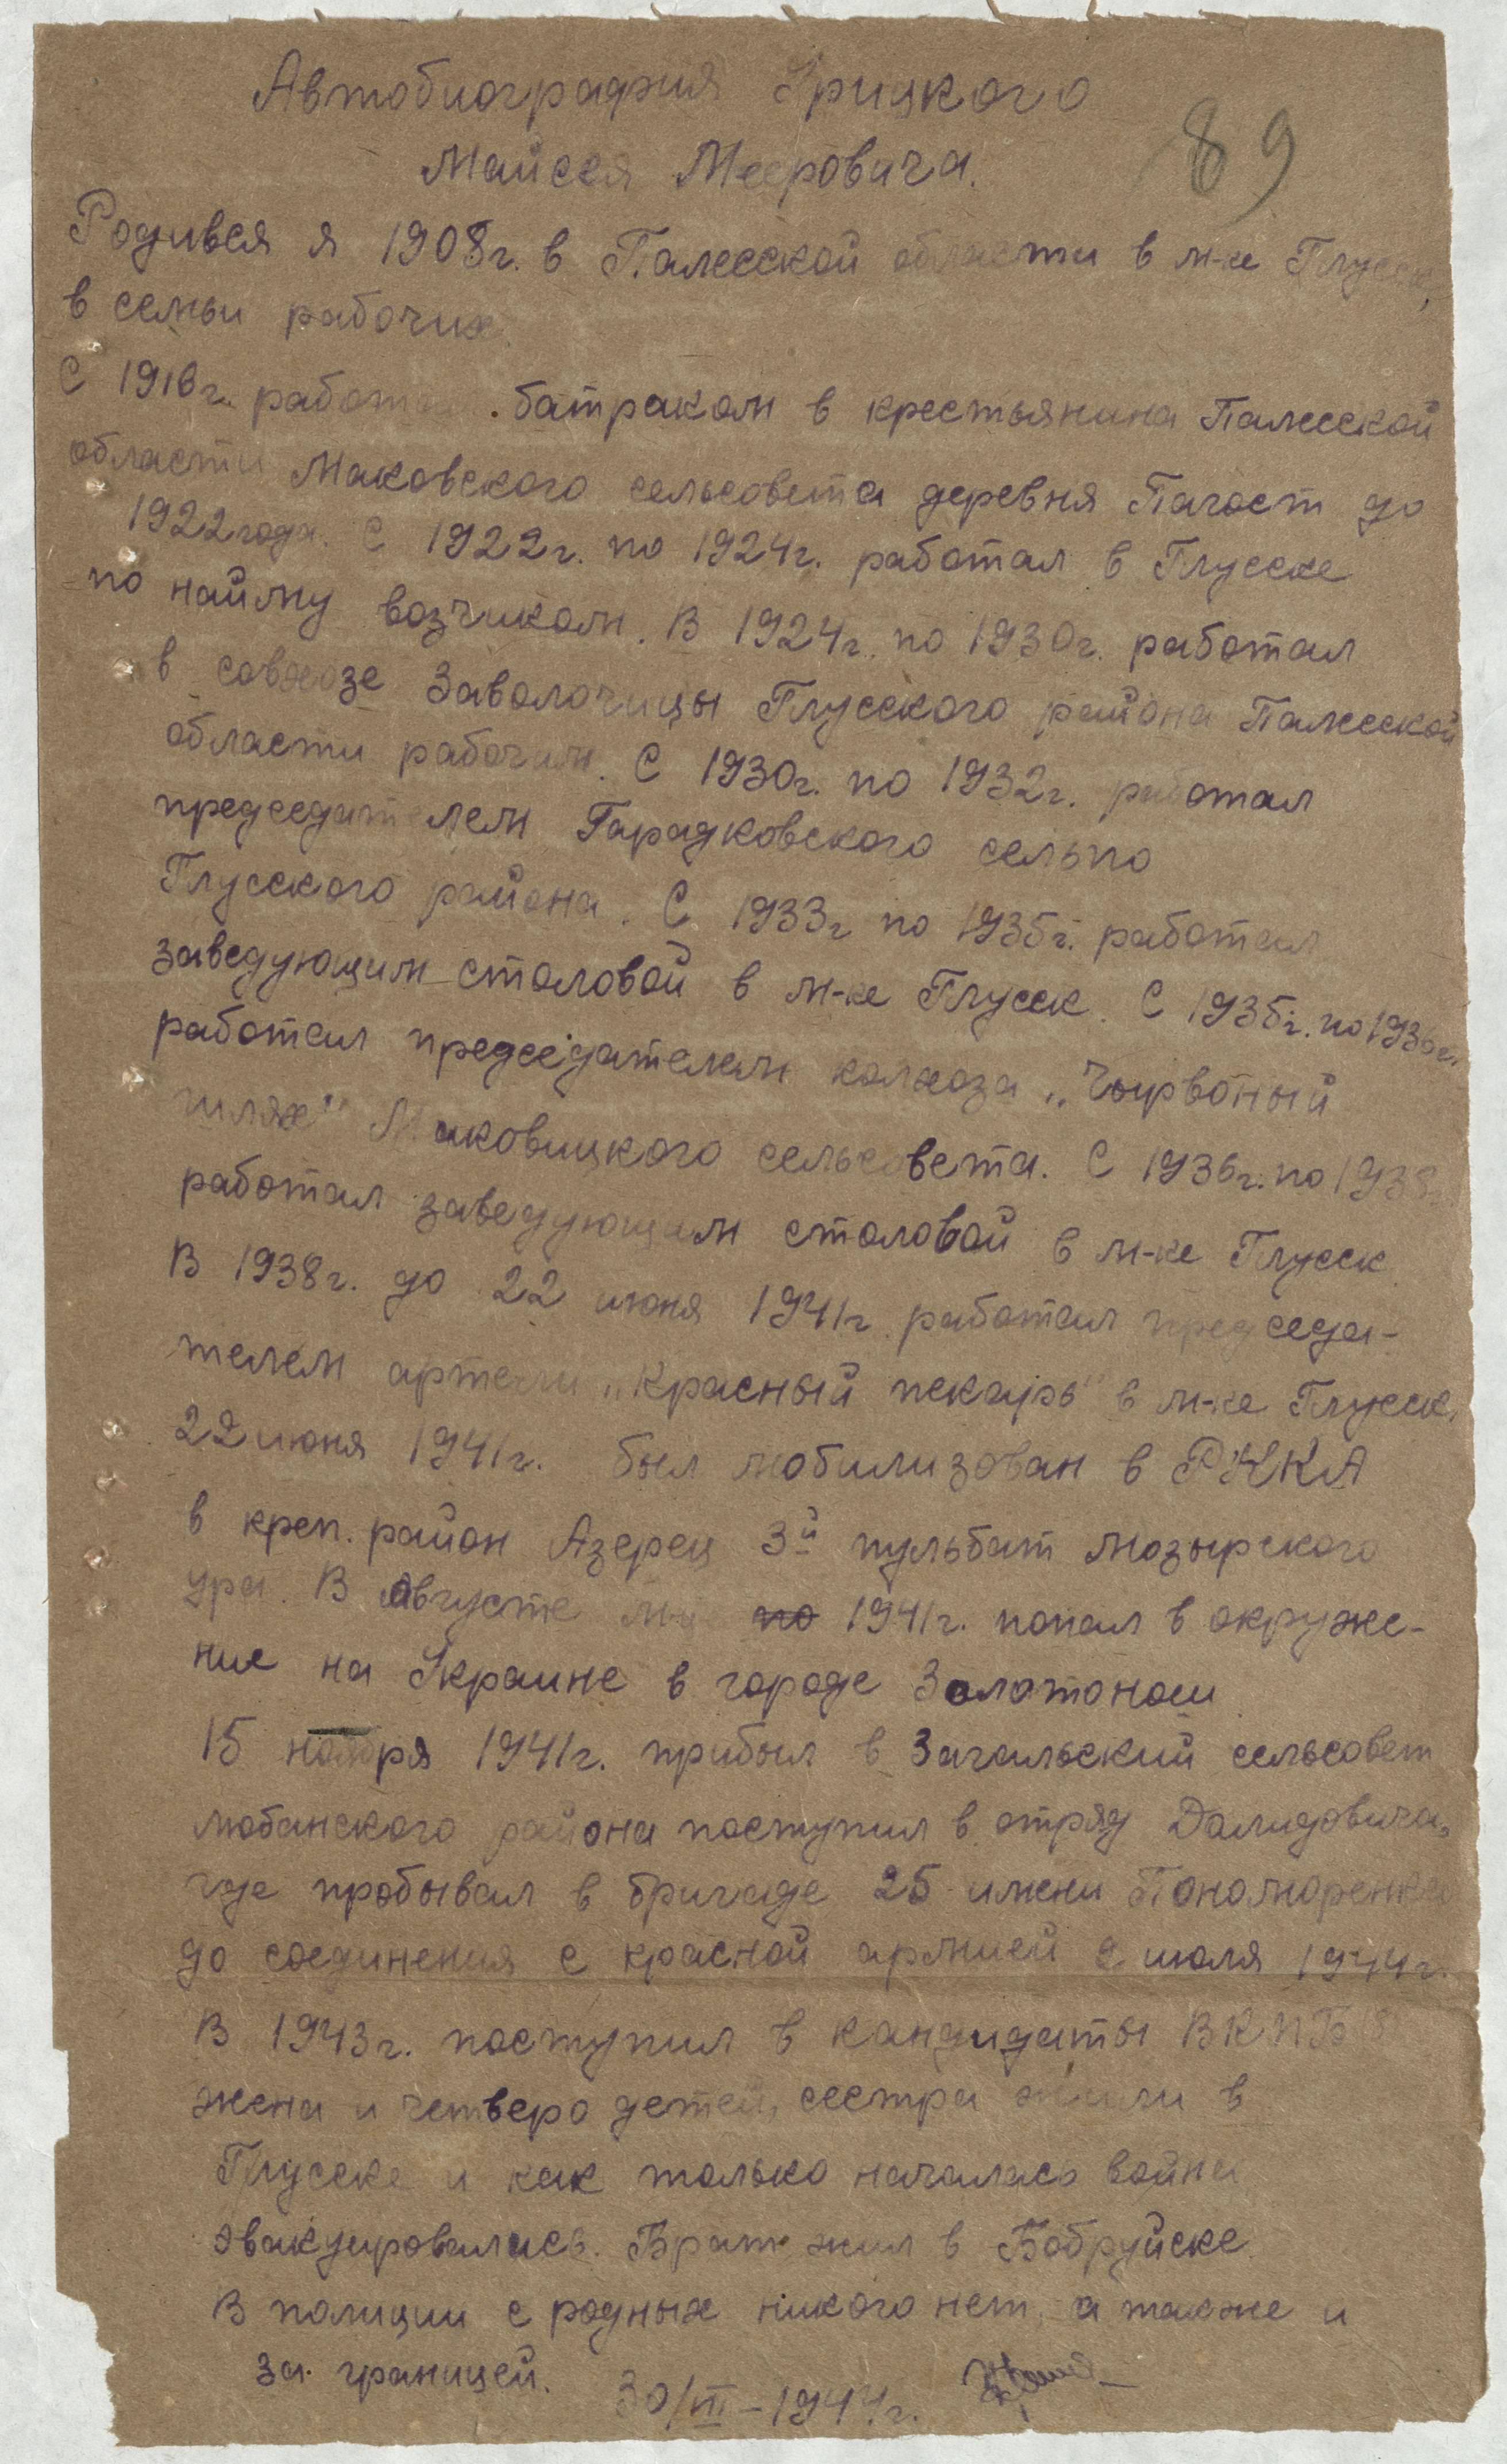 Автобиография Урицкого
Майсея Мееровича.
89
Родився я 1908г. в Палесской области в м-ке Глусск,
в семьи рабочих.
С 1916г. работал батраком в крестьянина Палесской
области Маковского сельсовета деревня Пагост до
1922 года. С 1922г. по 1924г. работал в Глусске
по найму возчиком. В 1924г. по 1930г. работал
в совхозе Заволочицы Глусского района Палесской
области рабочим. С 1930г. по 1932г. работал
председателем Гарадковского сельпо
Глусского района. С 1933г по 1935г. работал
заведующим столовой в м-ке Глусск. С 1935г. по 1936г.
работал председателем колхоза „Чырвоный
шлях" Маковицкого сельсовета. С 1936г. по 1938г
работал заведующим столовой в м-ке Глусск.
В 1938г. до 22 июня 1941г работал председа-
телем артели „Красный пекарь" в м-ке Глусск.
22 июня 1941г. был мобилизован в РККА
в креп. район Азерец 3й пульбат мозырского
ура. В августе по 1941г. попал в окруже-
ние на Украине в городе Золотонош
15 ноября 1941г. прибыл в Загальский сельсовет
любанского района поступил в отряд Далидовича,
где пробывал в бригаде 25 имени Пономоренка
до соединения с красной армией 2 июля 1944г.
В 1943г. поступил в кандидаты ВКПБ
жена и четверо детей, сестра жили в
Глусске и как только началась война
эвакуировались. Брат жил в Бобруйске
В полиции с родных никого нет, а также и
за границей. 30/VII-1944г.